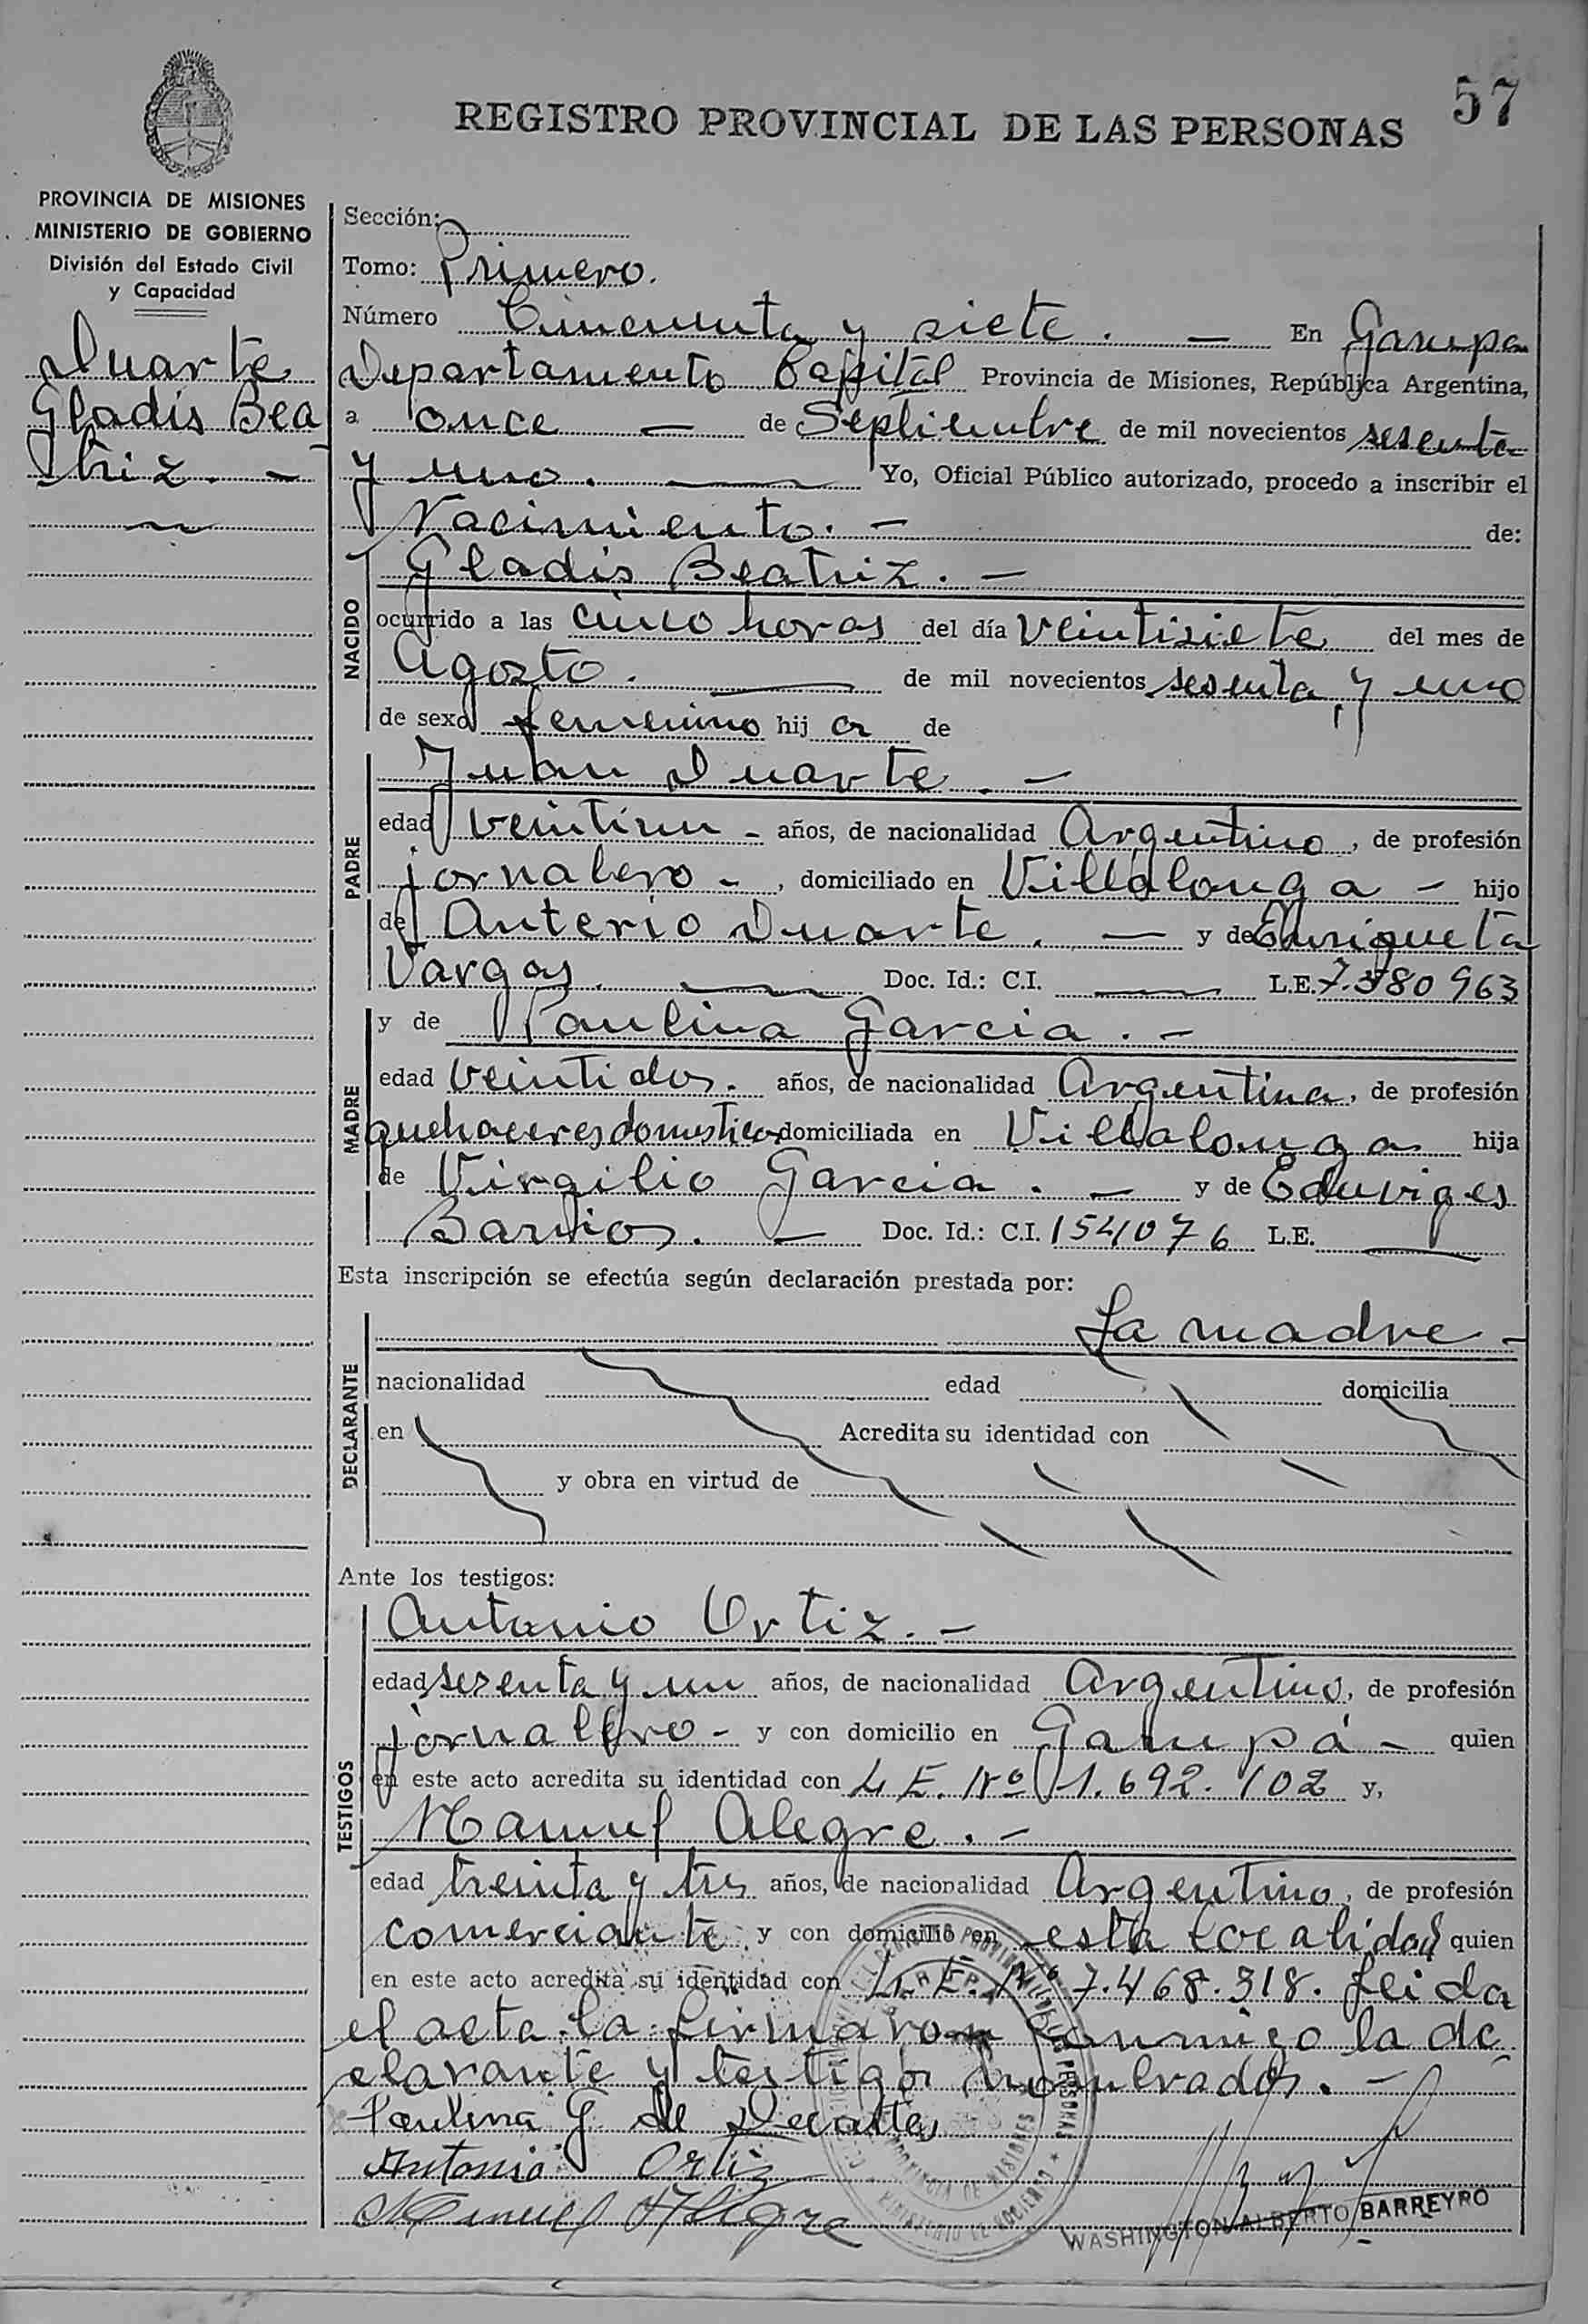 57
REGISTRO PROVINCIAL DE LAS PERSONAS
PROVINCIA DE MISIONES
MINISTERIO DE GOBIERNO
División del Estado Civil
y Capacidad
Duarte
Gladis Bea
triz. -
Sección:
Tomo: Primero.
Número Cincuenta y siete. - En Garupa
Departamento Capital Provincia de Misiones, República Argentina,
a once - de Septiembre de mil novecientos sesenta
y uno. Yo, Oficial Público autorizado, procedo a inscribir el
Nacimiento. - de:
NACIDO
Gladis Beatriz. -
ocurrido a las cinco horas del día veintisiete del mes de
Agosto. de mil novecientos sesenta y uno
de sexo femenino hij a de
PADRE
Juan Duarte. -
edad veintiun - años, de nacionalidad Argentino, de profesión
jornalero - , domiciliado en Villalonga - hijo
de Anterio Duarte. - y de Enriqueta
Vargas. Doc. Id.: C.I. L.E. 7.580963
MADRE
y de Paulina Garcia. -
edad veintidos. años, de nacionalidad Argentina, de profesión
quehaceres domesticos domiciliada en Villalonga hija
de Virgilio Garcia. - y de Eduviges
Barrios. - Doc. Id.: C.I. 154076 L.E.
Esta inscripción se efectúa según declaración prestada por:
DECLARANTE
La madre -
nacionalidad edad domicilia
en Acredita su identidad con
y obra en virtud de
Ante los testigos:
TESTIGOS
Antonio Ortiz. -
edad sesenta y un años, de nacionalidad Argentino, de profesión
jornalero - y con domicilio en Garupá - quien
en este acto acredita su identidad con L.E. Nº 1.692.102 y,
Manuel Alegre. -
edad treinta y tres años, de nacionalidad Argentino, de profesión
comerciante y con domicilio en esta localidad quien
en este acto acredita su identidad con L.E. Nº 7.468.318. Leida
el acta la firmaron conmigo la de
clarante y testigos nombrados. -
Paulina G de Duarte
Antonio Ortiz
Manuel Alegre
WASHINGTON ALBERTO BARREYRO